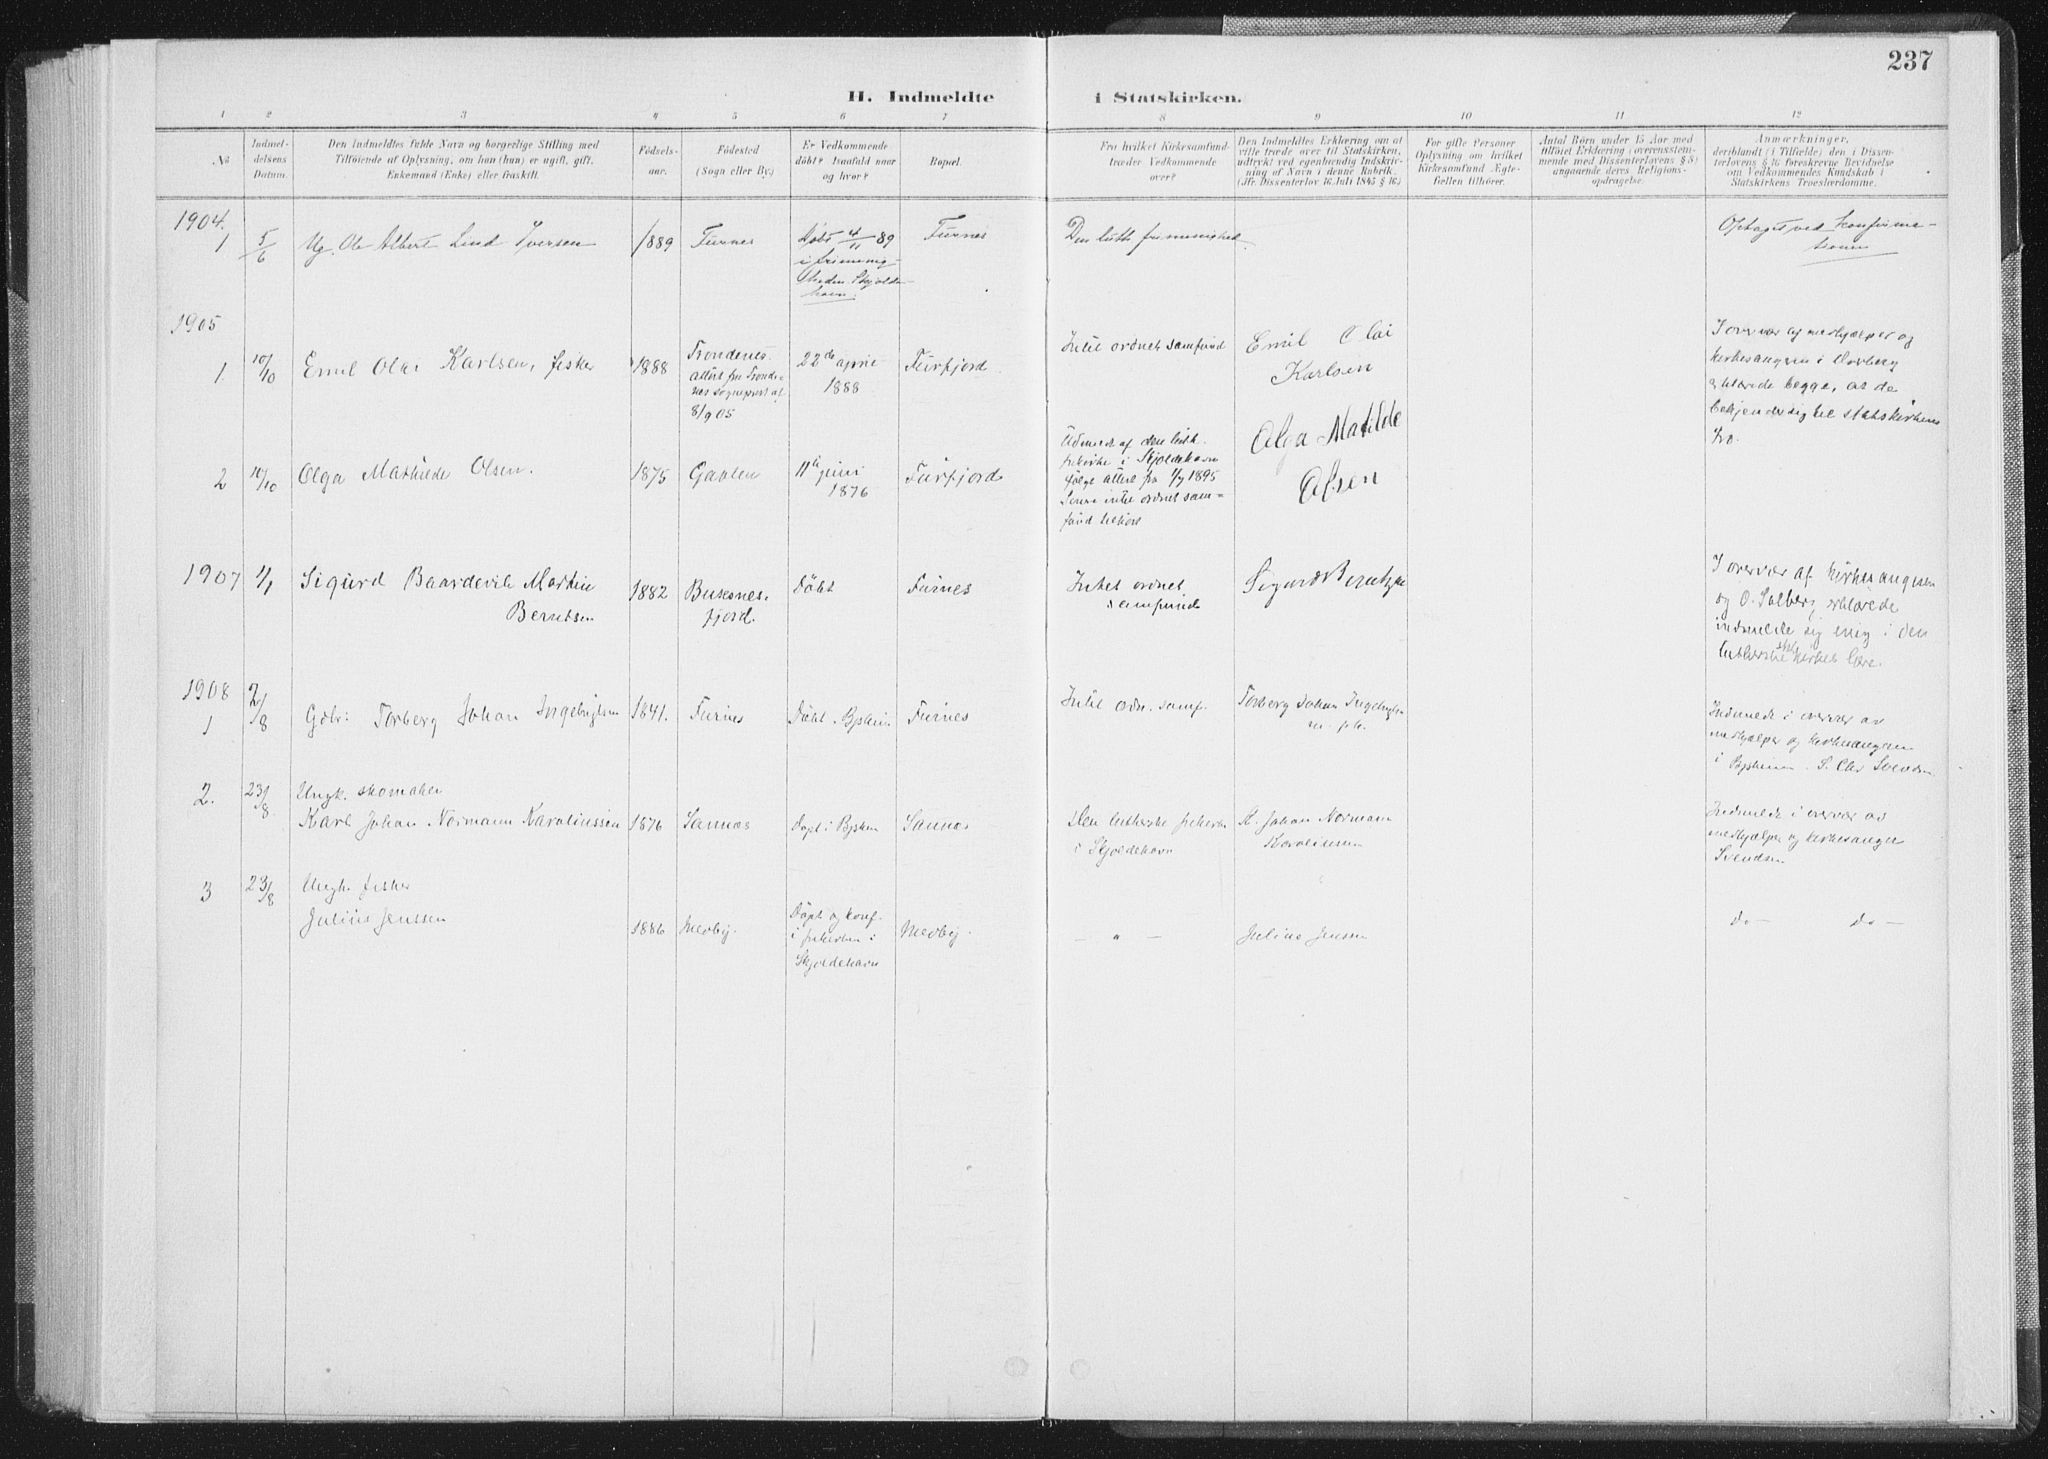 237
H. Indmeldte i Statskirken.
1 2 3 4 5 6 7 8 9 10 11 12
No
Indmel-
delsens
Datum.
Den Indmeldtes fulde Navn og borgerlige Stilling med
Tilföiende af Oplysning, om han (hun) er ugift, gift,
Enkemand (Enke) eller fraskilt.
Födsels-
aar.
Födested
(Sogn eller By.)
Er Vedkommende
döbt? Isaafald naar
og hvor?
Bopæl.
Fra hvilket Kirkesamfund
træder Vedkommende
over?
Den Indmeldtes Erklæring om at
ville træde over til Statskirken,
udtrykt ved egenhændig Indskriv-
ning af Navn i denne Rubrik.
(Jfr. Dissenterlov 16 Juli 1845 § 16.)
For gifte Personer
Oplysning om hvilket
Kirkesamfund Ægte-
fællen tilhörer.
Antal Börn under 15 Aar med
tilföiet Erklæring (overensstem-
mende med Dissenterlovens § 8)
angaaende deres Religions-
opdragelse.
Anmærkninger,
deriblandt (i Tilfælde) den i Dissen-
terlovens § 16 foreskrevne Bevidnelse
om Vedkommendes Kundskab i
Statskirkens Troeslærdomme.
1904.
1
5/6
Ug. Ole Albert Lind Iversen
1889
Furnes
Döbt 4/11 89
i frimenig-
heden Skjolde-
havn.
Furnes
Den luth. frimenighed
Optaget ved konfirma-
tionen
1905
1.
10/10
Emil Olai Karlsen, fisker
1888
Trondenes.
attest fra Tronde-
nes sogneprest af
8/9 05
22de april
1888
Furfjord
Intet ordnet samfund
Emil Olai
Karlsen
I overvær af medhjælper og
kirkesangeren i
erklærede begge, at de
bekjender sig til statskirkens
tro.
2
10/10
Olga Mathilde Olsen.
1875
Gavlen
11te juni
1876
Furfjord
Udmeldt af den luth.
frikirke i Skjoldehavn
ifølge attest fra 1/7 1895
Senere intet ordnet sam-
fund tilhört
Olga Matilde
Olsen
1907
1/1
Sigurd Baardevik Martin
Berntsen
1882
Buksnes-
fjord.
Döbt
Furnes
Intet ordnet
samfund
Sigurd Berntzen
I overvær af kirkesangeren
og O. Solberg erklærede
indmeldte sig enig i den
lutherske kirkes lære.
1908
1
2/8
Gdbr: Torberg Johan Ingebrigtsen
1841.
Furnes
Döbt. Bjørkein
Furnes
Intet ordn. samf.
Torberg Johan Ingebrigtsen
m. p. p.
Indmeldt i overvær av
medhjælper og kirkesangeren
i S. Chr Svendsen
2.
23/8
Ungk. skomaker
Karl Johan Normann Karoliussen
1876
Sannes
Döpt i
Sannes
Den lutherske frikirke
i Skjoldehavn
K. Johan Normann
Karoliussen
Indmeldt i overvær av
medhjælper og kirkesanger
Svendsen
3
23/8
Ungk. fisker
Julius Jenssen
1886
Medby.
Döpt og konf.
i frikirken i
Skjoldehavn
Medby.
— " —
Julius Jenssen
do — do —